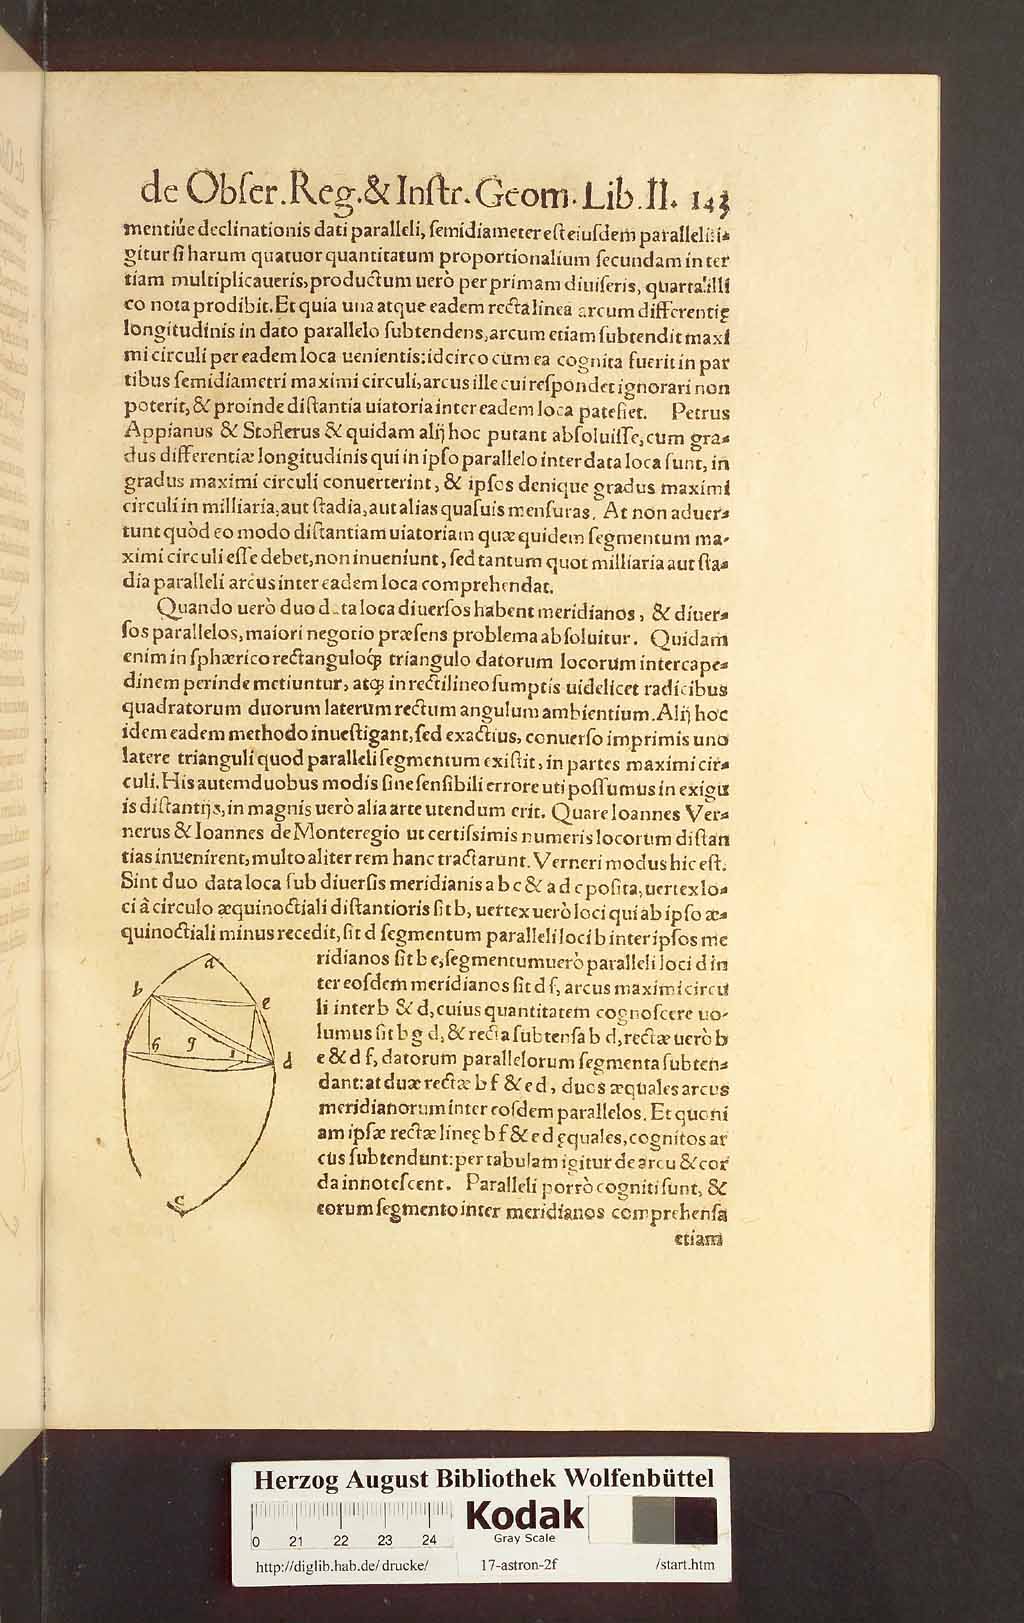 de Obſer. Reg. & Inſtr. Geom. Lib. II. 143
mentiúe declinationis dati paralleli, ſemidiameter eſt eiuſdem paralleli: i⸗
gitur ſi harum quatuor quantitatum proportionalium ſecundam in ter
tiam multiplicaueris, productum uerò per primam diuiſeris, quarta illi
co nota prodibit. Et quia una atque eadem recta linea arcum differentię
longitudinis in dato parallelo ſubtendens, arcum etiam ſubtendit maxi
mi circuli per eadem loca uenientis: idcirco cùm ea cognita fuerit in par
tibus ſemidiametri maximi circuli, arcus ille cui reſpondet ignorari non
poterit, & proinde diſtantia uiatoria inter eadem loca pateſiet. Petrus
Appianus & Stoflerus & quidam alij hoc putant abſoluiſſe, cum gra⸗
dus differentiæ longitudinis qui in ipſo parallelo inter data loca ſunt, in
gradus maximi circuli conuerterint, & ipſos denique gradus maximi
circuli in milliaria, aut ſtadia, aut alias quaſuis menſuras. At non aduer⸗
tunt quòd eo modo diſtantiam uiatoriam quæ quidem ſegmentum ma⸗
ximi circuli eſſe debet, non inueniunt, ſed tantum quot milliaria aut ſta⸗
dia paralleli arcus inter eadem loca comprehendat.
Quando uerò duo data loca diuerſos habent meridianos, & diuer⸗
ſos parallelos, maiori negotio præſens problema abſoluitur. Quidam
enim in ſphærico rectanguloq́ꝫ triangulo datorum locorum intercape⸗
dinem perinde metiuntur, atqꝫ in rectilineo ſumptis uidelicet radicibus
quadratorum duorum laterum rectum angulum ambientium. Alij hoc
idem eadem methodo inueſtigant, ſed exactius, conuerſo imprimis uno
latere trianguli quod paralleli ſegmentum exiſtit, in partes maximi cir⸗
culi. His autem duobus modis ſine ſenſibili errore uti poſſumus in exigu
is diſtantijs, in magnis uerò alia arte utendum erit. Quare Ioannes Ver⸗
nerus & Ioannes de Monteregio ut certiſsimis numeris locorum diſtan
tias inuenirent, multo aliter rem hanc tractarunt. Verneri modus hic eſt.
Sint duo data loca ſub diuerſis meridianis a b c & a d c poſita, uertex lo⸗
ci à circulo æquinoctiali diſtantioris ſit b, uertex uerò loci qui ab ipſo æ⸗
quinoctiali minus recedit, ſit d ſegmentum paralleli loci b inter ipſos me
ridianos ſit b e, ſegmentum uerò paralleli loci d in
ter eoſdem meridianos ſit d f, arcus maximi circu
li inter b & d, cuius quantitatem cognoſcere uo⸗
lumus ſit b g d, & recta ſubtenſa b d, rectæ uerò b
e & d f, datorum parallelorum ſegmenta ſubten⸗
dant: at duæ rectæ b f & e d, duos æquales arcus
meridianorum inter eoſdem parallelos. Et quoni
am ipſæ rectæ lineę b f & e d ęquales, cognitos ar
cus ſubtendunt: per tabulam igitur de arcu & cor
da innoteſcent. Paralleli porrò cogniti ſunt, &
eorum ſegmento inter meridianos comprehenſa
etiam
a
b
e
h
g
i
d
c
Herzog August Bibliothek Wolfenbüttel
Kodak
Gray Scale
0 21 22 23 24
http://diglib.hab.de/drucke/ 17-astron-2f /start.htm